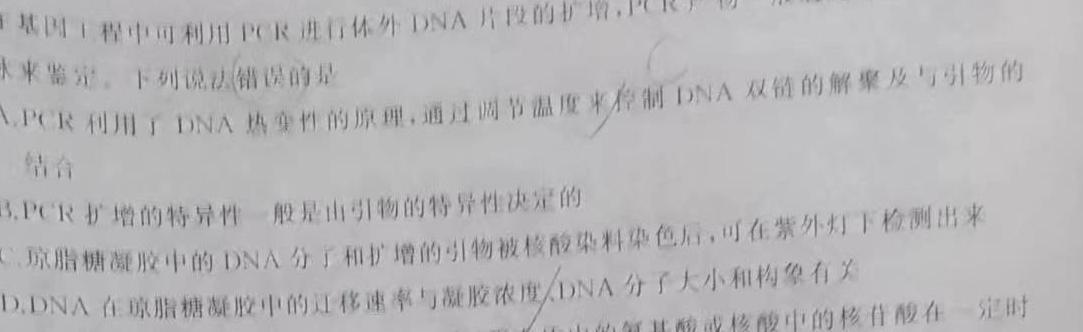 基因工程中可利用PCR进行体外DNA片段的扩增,PCR产物一般
来鉴定。下列说法错误的是
A.PCR利用了DNA热变性的原理,通过调节温度来控制DNA双链的解聚及与引物的
结合
B.PCR扩增的特异性一般是由引物的特异性决定的
C.琼脂糖凝胶中的DNA分子和扩增的引物被核酸染料染色后,可在紫外灯下检测出来
D.DNA在琼脂糖凝胶中的迁移速率与凝胶浓度、DNA分子大小和构象有关
中的氨基酸或核酸中的核苷酸在一定时